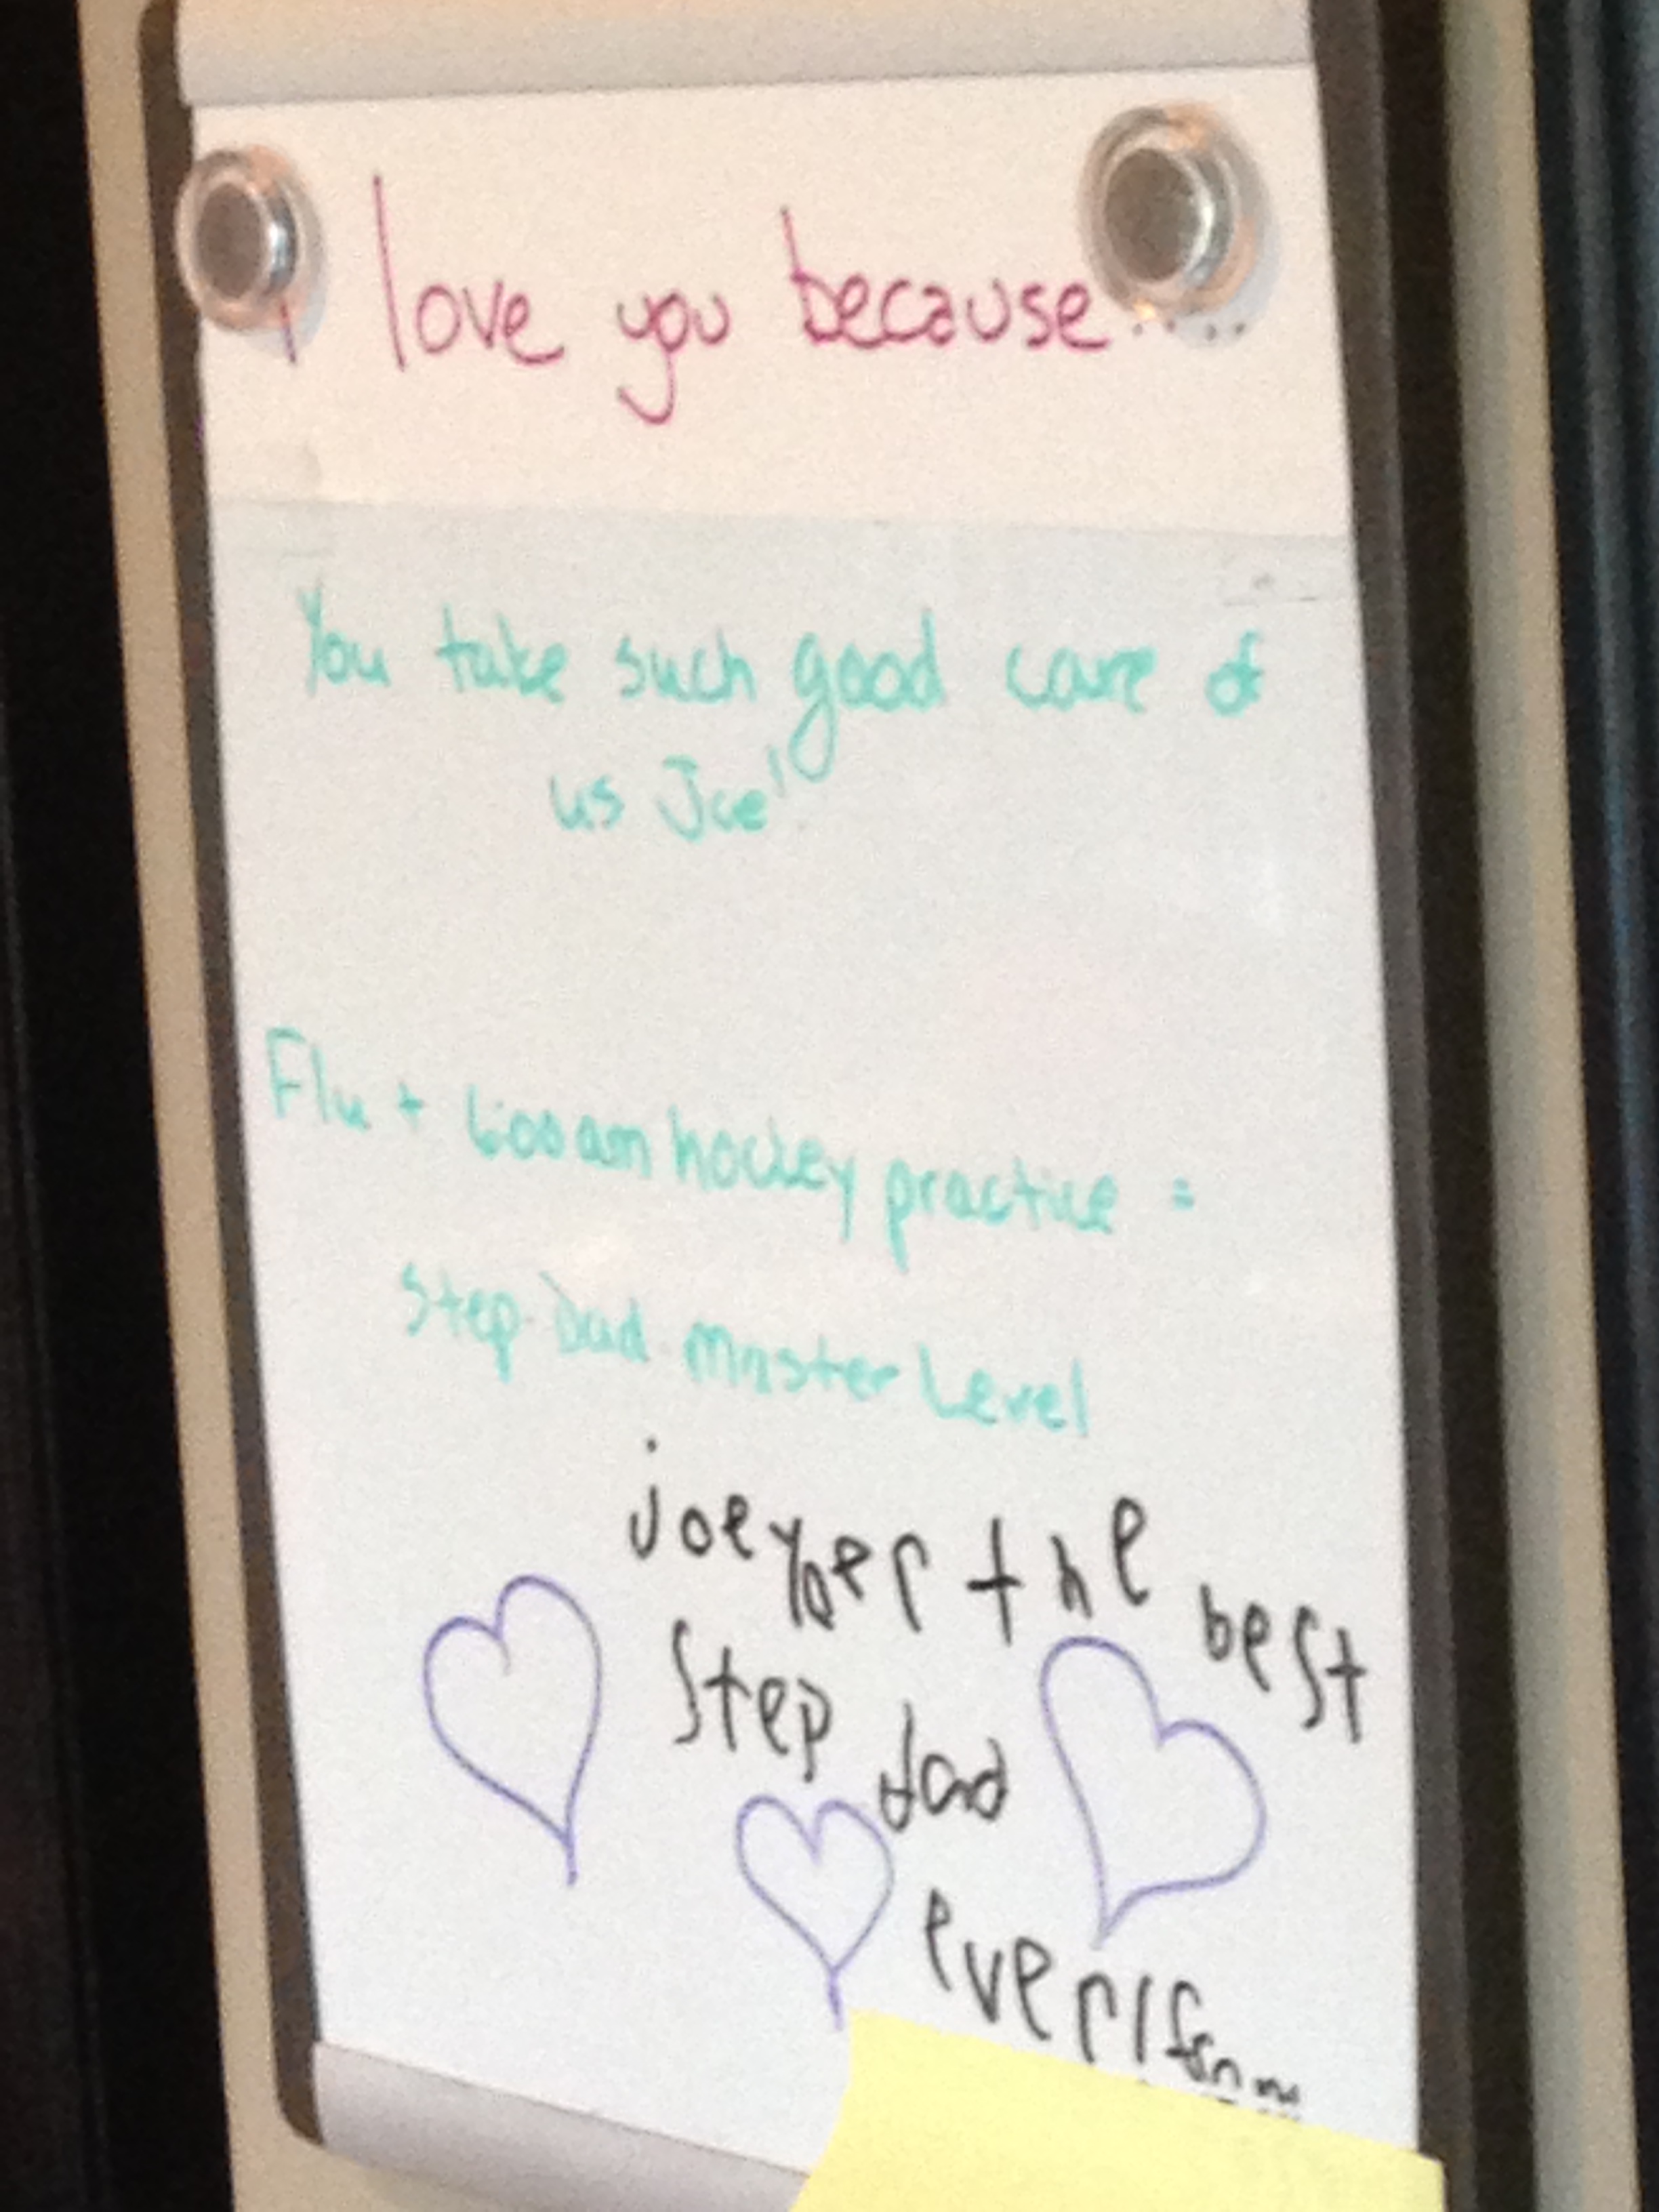 I love you because....
You take such good care of
us Joe!
Flu + 6:00 am hockey practice =
Step-Dad Master Level
joe yoer the best
step dad
ever